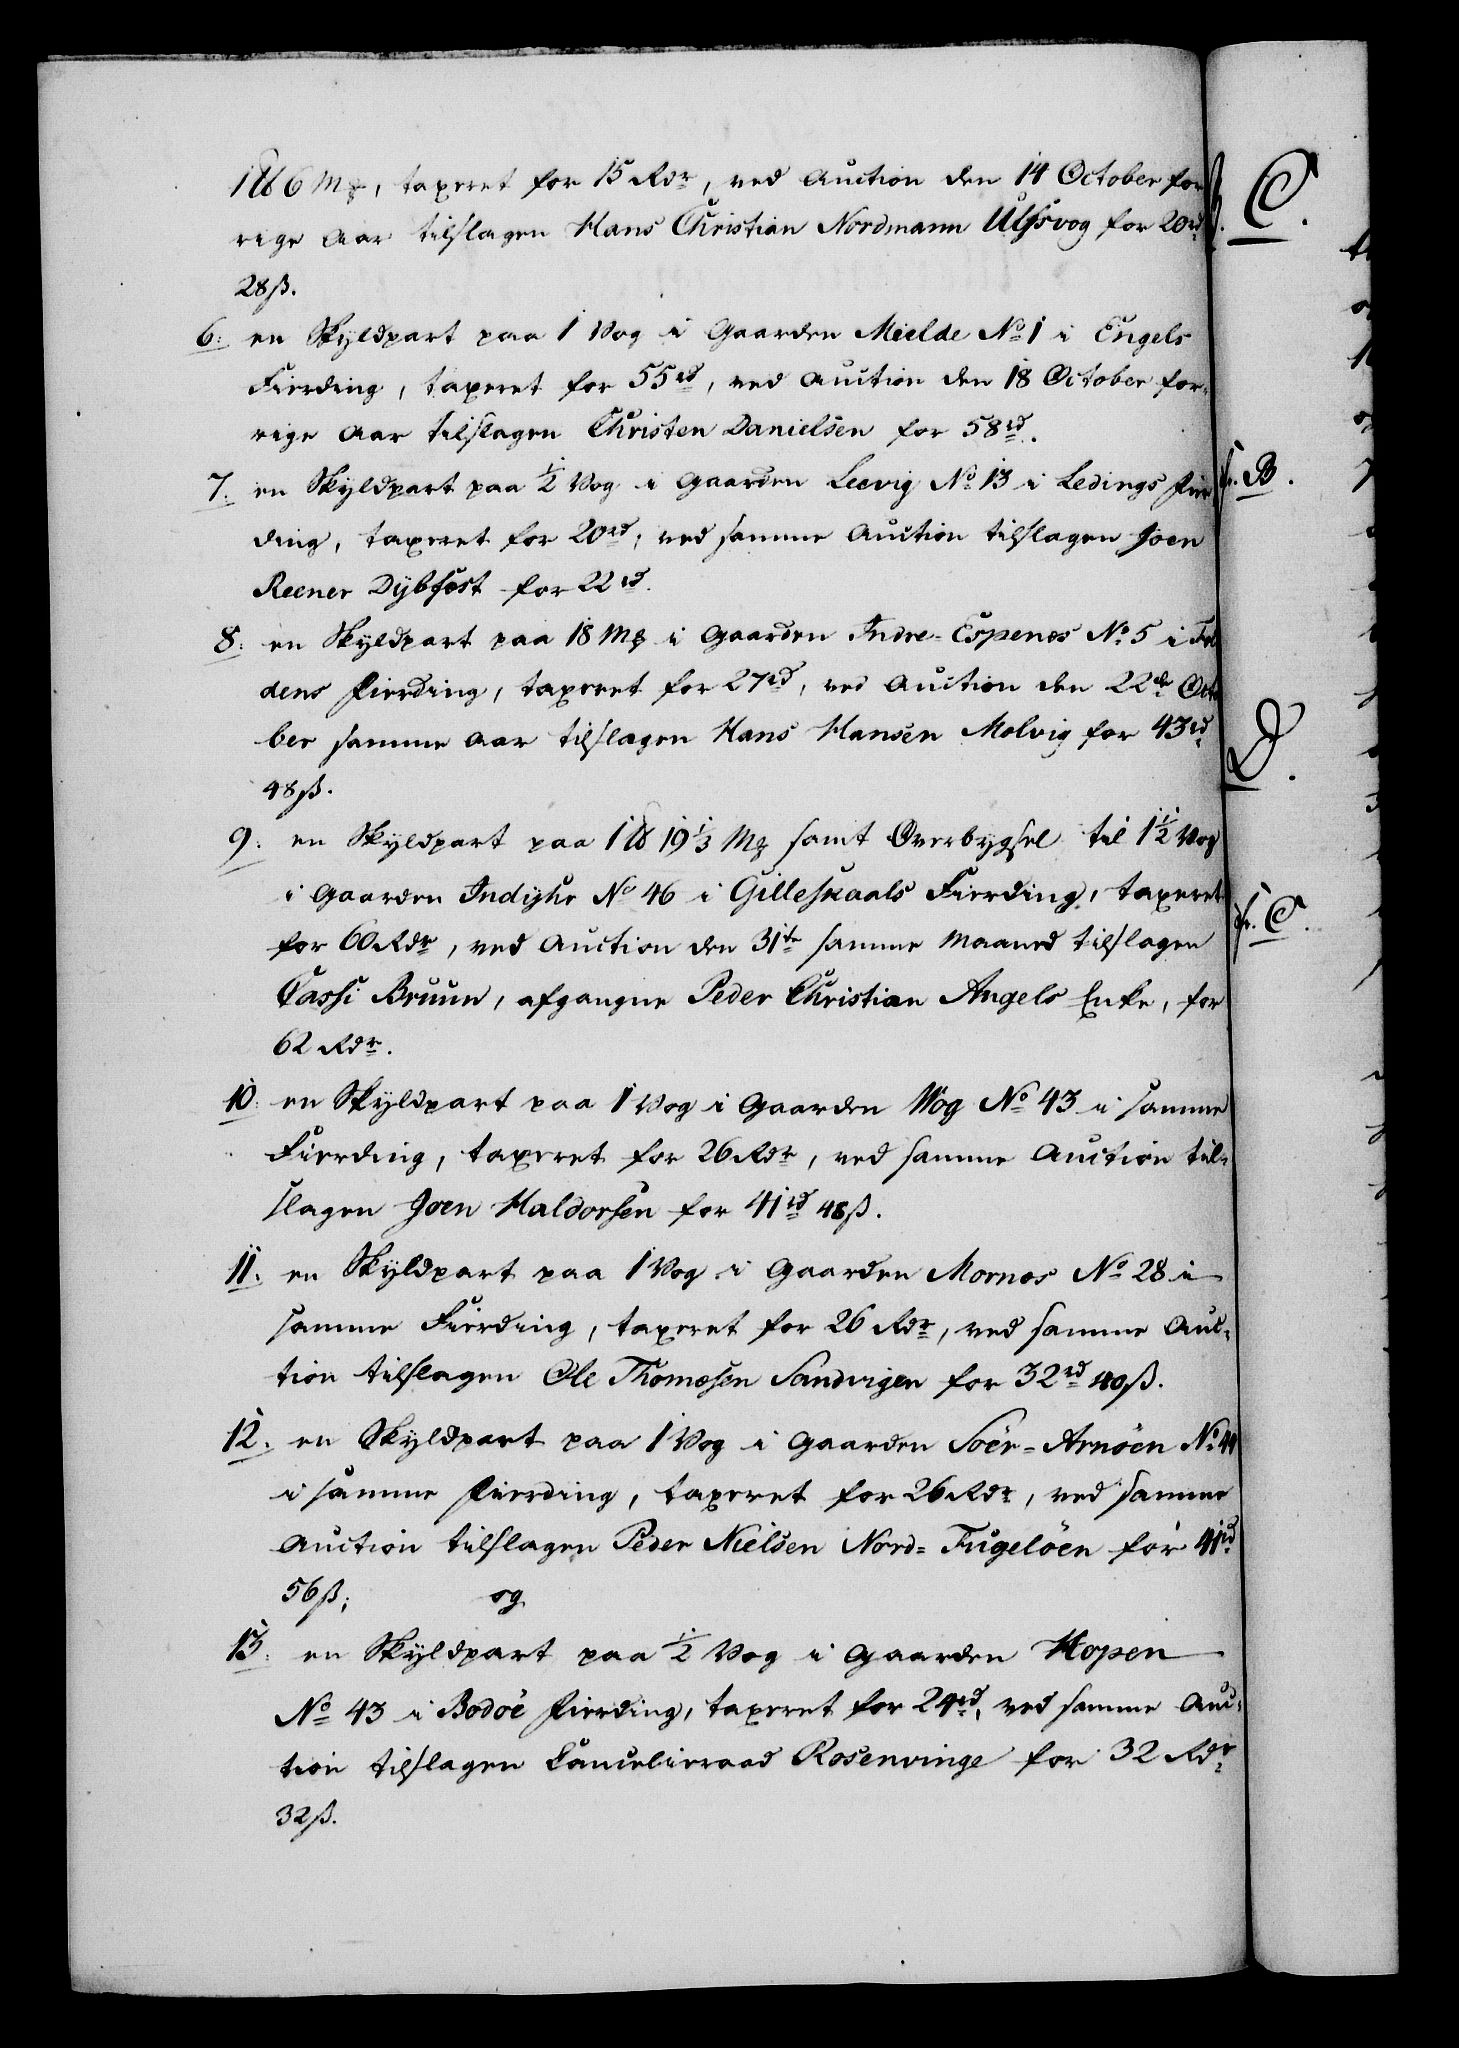 1 ℔ 6 Mk, taxeret for 15 Rdr, ved Auction den 14 October for
rige Aar tilslagen Hans Christian Nordmann Ulfsvog for 20rd
28ß.
6. en Skyldpart paa 1 Vog i Gaarden Mielde No 1 i Engels
Fierding, taxeret for 55rd, ved Auction den 18 October for-
rige Aar tilslagen Christen Danielsen for 58rd.
7. en Skyldpart paa ½ Vog i Gaarden Leevig No 13 i Ledings Fier
ding, taxeret for 20rd, ved samme Auction tilslagen Joen
Reener Dybfost for 22rd.
8. en Skyldpart paa 18 Mk i Gaarden Indre-Espenes No 5 i
dens Fierding, taxeret for 27rd, ved Auction den 22de Octo
ber samme Aar tilslagen Hans Hansen Molvig for 43rd
48ß.
9. en Skyldpart paa 1 ℔ 19⅓ Mk samt Overbygsel til 1½ Vog
i Gaarden Indyhr No 46 i Gilleskaals Fierding, taxeret
for 60 Rdr, ved Auction den 31te samme Maaned tilslagen
Cassi Bruun, afgangne Peder Christian Angels Enke, for
62 Rdr.
10. en Skyldpart paa 1 Vog i Gaarden Vog No 43 i samme
Fierding, taxeret for 26 Rdr, ved samme Auction til-
slagen Joen Haldorsen for 41rd 48ß.
11. en Skyldpart paa 1 Vog i Gaarden Mornes No 28 i
samme Fierding, taxeret for 26 Rdr, ved samme Auc-
tion tilslagen Ole Thomesen Sandvigen for 32rd 40ß.
12. en Skyldpart paa 1 Vog i Gaarden Söer-Arnöen No 44
i samme Fierding, taxeret for 26 Rdr, ved samme
Auction tilslagen Peder Nielsen Nord-Fugelöen for 41rd
56ß; og
13. en Skyldpart paa ½ Vog i Gaarden Hopen
No 43 i Bodöe Fierding, taxeret for 24rd, ved samme Auc-
tion tilslagen Cancelieraad Rosenvinge for 32 Rdr
32ß.
C.
B.
D.
C.